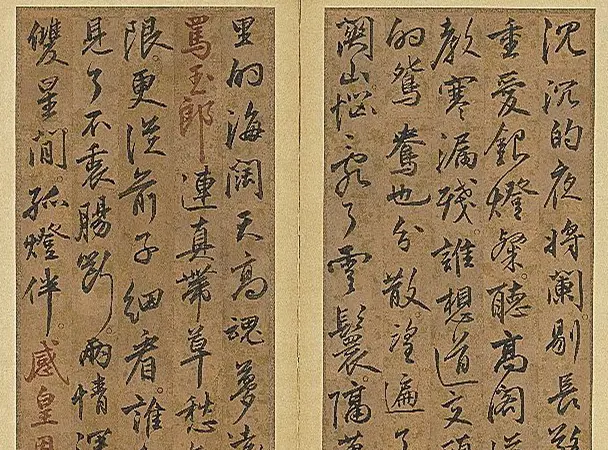 沉沉的夜將闌剔長
重愛銀燈粲聽高閣
教寒漏殘誰想道交頸
的鴛鴦也分散望遍了
關山惱亂了雲鬟隔萬
里的海闊天高魂夢遠
罵玉郎 連真帶草愁
限更從前子細看誰
見了不衷腸斷兩情深
雙星間孤燈伴 感皇恩